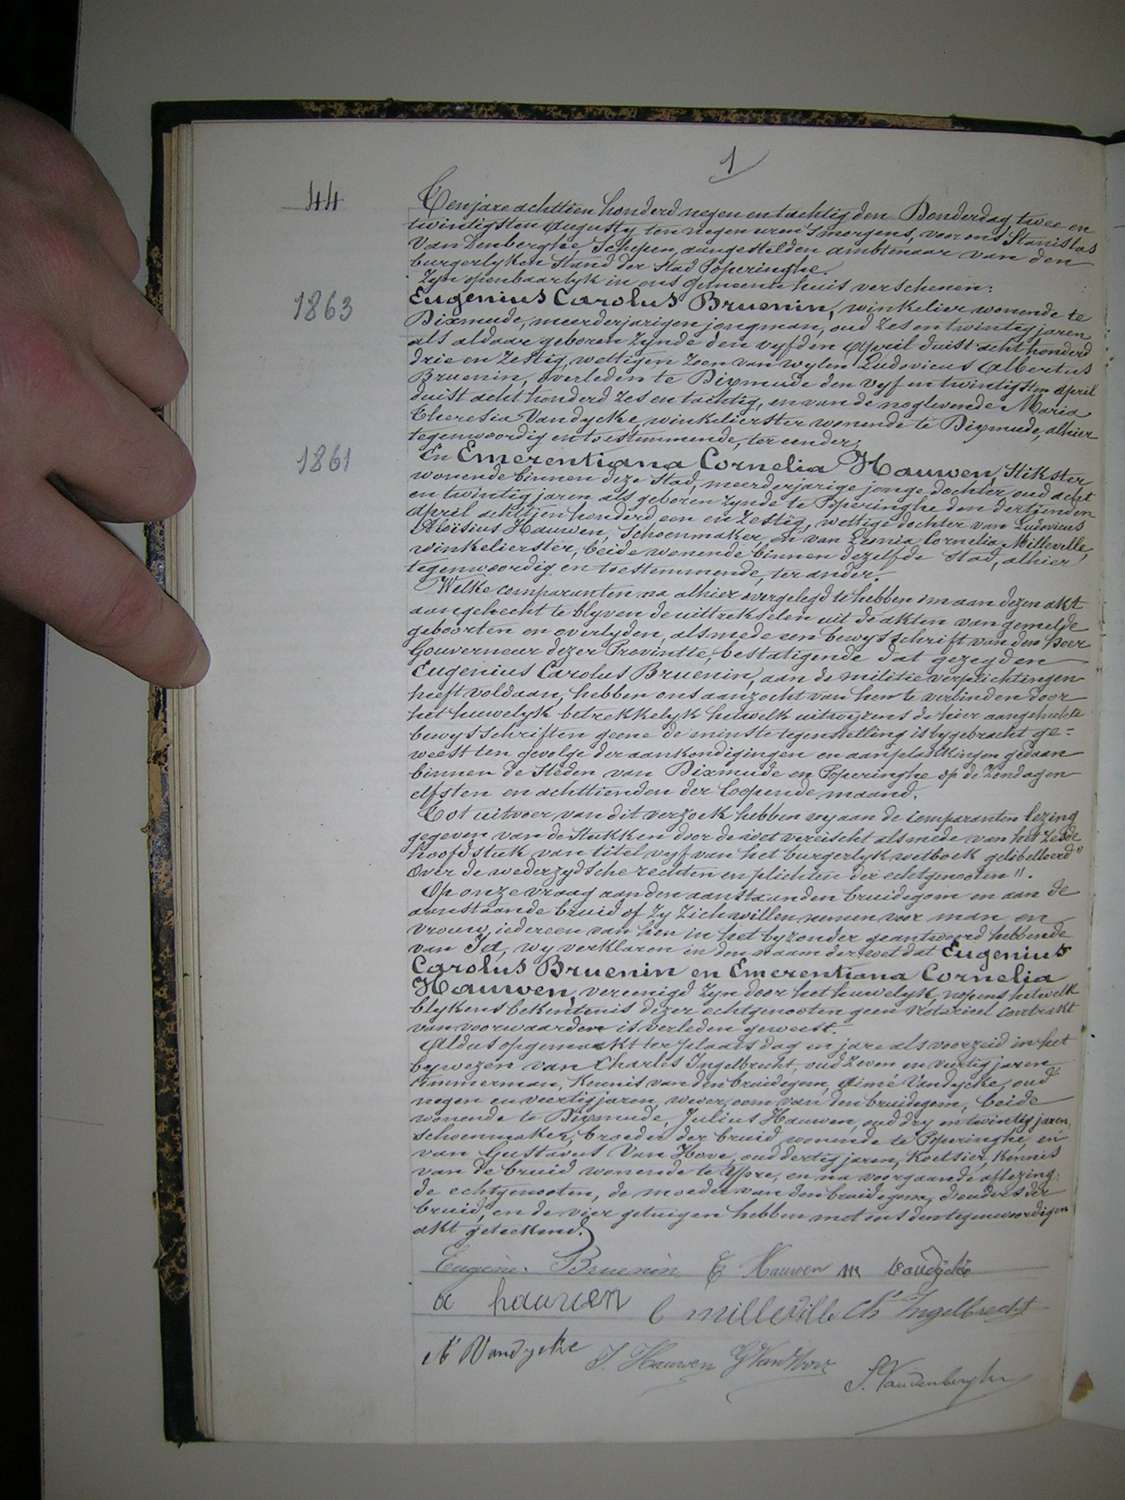 1
44
Ten jare achttien honderd negen en tachtig den Donderdag twee en
twintigsten Augusty ten negen uren 's morgens, voor ons Stanislas
Van Denberghe, Schepen, aangestelden ambtenaar van den
burgerlyken stand der Stad Poperinghe.
Zyn openbaarlyk in ons gemeente huis verschenen:
1863
Eugenius Carolus Bruenin, winkelier wonende te
Dixmude, meerderjarigen jongman, oud zes en twintig jaren
als aldaar geboren zynde den vyfden April duist acht honderd
drie en zestig, wettigen zoon van wylen Ludovicus Albertus
Bruenin, overleden te Dixmude den vyf en twintigsten April
duist acht honderd zes en tachtig, en van de noglevende Maria
Theresia Vandycke, winkelierster wonende te Dixmude, alhier
tegenwoordig en toestemmende, ter eender,
1861
En Emerentiana Cornelia Hauwen, Stikster
wonende binnen deze Stad, meerderjarige jonge dochter, oud acht
en twintig jaren als geboren zynde te Poperinghe den dertienden
April achttien honderd een en zestig, wettige dochter van Ludovicus
Aloïsius Hauwen, Schoenmaker, en van Cornelia Milleville,
winkelierster, beide wonende binnen dezelfde Stad, alhier
tegenwoordig en toestemmende, ter ander.
Welke comparanten na alhier overgelegd te hebben om aan dezen akt
aangehecht te blyven de uittrekselen uit de akten van gemelde
geboorten en overlyden, alsmede een bewysschrift van den heer
Gouverneur dezer Provintie, bestatigende dat gezeyden
Eugenius Carolus Bruenin, aan de militie verplichtingen
heeft voldaan, hebben ons aanzocht van hen te verbinden door
het huwelyk betrekkelyk hetwelk uitwyzens de hier aangehechte
bewysschriften geene de minste tegenstelling is bygebracht ge=
weest ten gevolge der aankondigingen en aanplakkingen gedaan
binnen de Steden van Dixmude en Poperinghe op de Zondagen
elfsten en achttienden der loopende maand.
Tot uitvoer van dit verzoek hebben wy aan de comparanten lezing
gegeven van de Stukken door de wet vereischt alsmede van het zesde
hoofdstuk van titel vyf van het burgerlyk wetboek gelibelleerd "
Over de wederzydsche rechten en plichten der echtgenooten ".
Op onze vraag aan den aanstaanden bruidegom en aan de
aanstaande bruid of zy zich willen nemen voor man en
vrouw, iedereen van hen in het byzonder geantwoord hebbende
van Ja, wy verklaren in den naam der wet dat Eugenius
Carolus Bruenin en Emerentiana Cornelia
Hauwen, vereenigd zyn door het huwelyk, nopens hetwelk
blykens bekentenis dezer echtgenooten geen Notarieel Contrakt
van voorwaarden is verleden geweest.
Aldus opgemaakt ter plaats dag en jare als voorzeid in het
bywezen van Charles Ingelbrecht, oud zeven en veertig jaren
timmerman, kennis van den bruidegom, Aimé Vandycke, oud
negen en veertig jaren, wever, oom van den bruidegom, beide
wonende te Dixmude, Julius Hauwen, oud dry en twintig jaren,
schoenmaker, broeder der bruid, wonende te Poperinghe, en
van Gustavus Van Hove, oud dertig jaren, Koetsier, kennis
van de bruid wonende te Ypre, en na voorgaande aflezing:
de echtgenooten, de moeder van den bruidegom, d'ouders der
bruid, en de vier getuigen hebben met ons den tegenwoordigen
akt geteekend.
Eugène Bruenin E Hauwen M Vandycke
a hauwen C milleville Ch Ingelbrecht
A Vandycke J. Hauwen G Van Hove
S. Vandenberghe